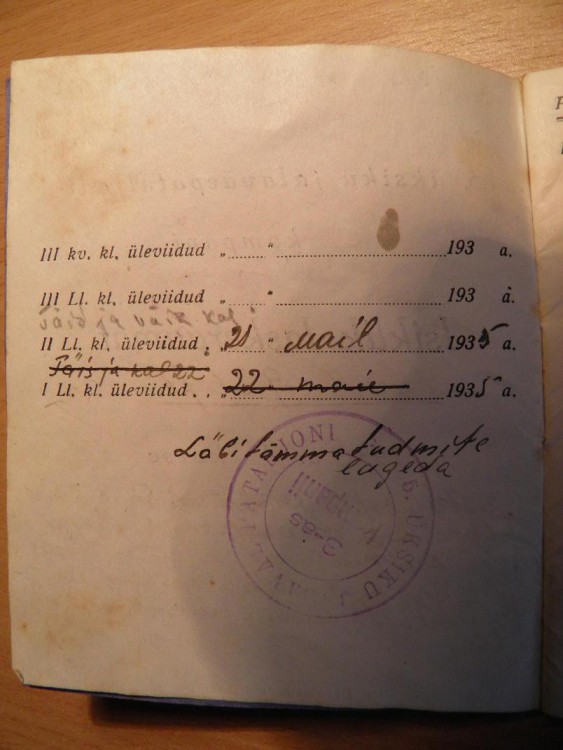 III kv. kl. üleviidud „......“.................193 a.
III Ll. kl. üleviidud „......“.................193 a.
täis ja väik kal.
II Ll. kl. üleviidud . „21“ mail 1935 a.
Täis ja kal 22.
I Ll. kl. üleviidud . . „22 maie 1935 a.
Läbitõmmatud mitte
lugeda
6. ÜKSIKU JALAVÄEPATALJONI
3-as
kompanii